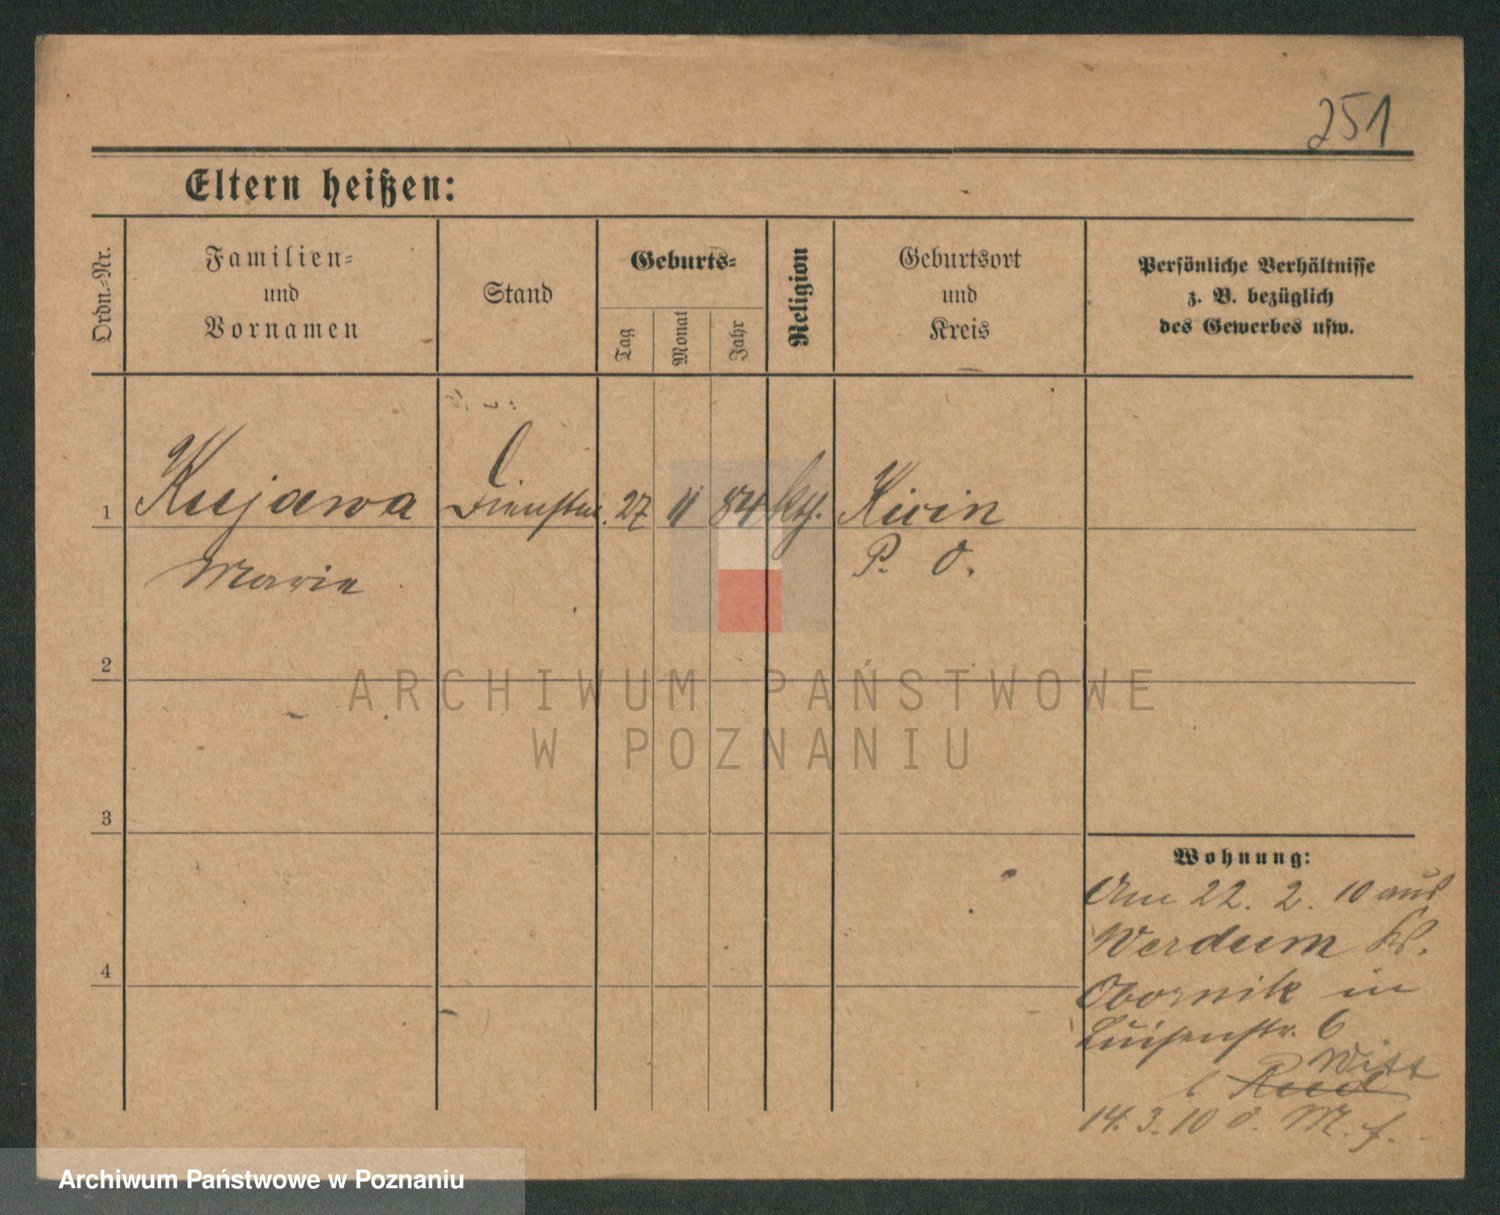 251
Eltern heißen:
Ordn.-Nr.
Familien- und Vornamen
Stand
Geburts-
Tag
Monat
Jahr
Religion
Geburtsort und Kreis
Persönliche Verhältnisse
z. B. bezüglich
des Gewerbes usw.
1 Kujawa Dienstm. 27 11 84 kth. Kicin
Marie P. O.
2
3
4
Wohnung:
Am 22. 2. 10 aus
Werdum Kr.
Obornik in
Luisenstr. 6
Witt
b
14. 3. 10 O. M. f.
ARCHIWUM PAŃSTWOWE
W POZNANIU
Archiwum Państwowe w Poznaniu